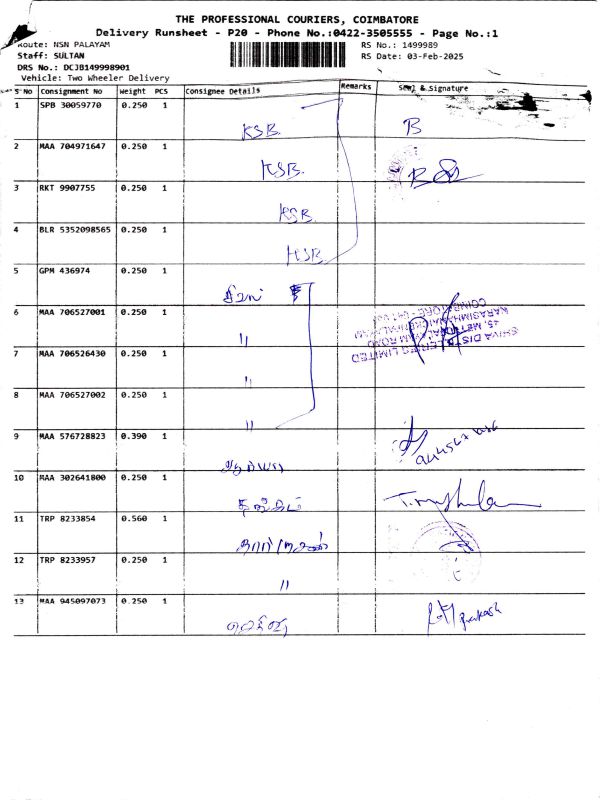 THE PROFESSIONAL COURIERS, COIMBATORE
Delivery Runsheet - P20 - Phone No.:0422-3505555 - Page No.:1
Route: NSN PALAYAM
RS No.: 1499989
Staff: SULTAN
RS Date: 03-Feb-2025
DRS No.: DCJB149998901
Vehicle: Two Wheeler Delivery
S No Consignment No Weight PCS Consignee Details Remarks Seal & Signature
1 SPB 30059770 0.250 1 KSB B
2 MAA 704971647 0.250 1 KSB
3 RKT 9907755 0.250 1 KSB
4 BLR 5352098565 0.250 1 KSB
5 GPM 436974 0.250 1
6 MAA 706527001 0.250 1 "
SHIVA DISTILLERIES LIMITED
7 MAA 706526430 0.250 1 "
8 MAA 706527002 0.250 1 "
9 MAA 576728823 0.390 1
10 MAA 302641800 0.250 1
11 TRP 8233854 0.560 1
12 TRP 8233957 0.250 1 "
13 MAA 945097073 0.250 1 Prakash